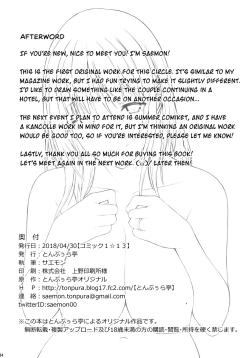 AFTERWORD
IF YOU'RE NEW, NICE TO MEET YOU! I'M SAEMON!
THIS IS THE FIRST ORIGINAL WORK FOR THIS CIRCLE. IT'S SIMILAR TO MY
MAGAZINE WORK, BUT I HAD FUN TRYING TO MAKE IT SLIGHTLY DIFFERENT.
I'D LIKE TO DRAW SOMETHING LIKE THE COUPLE CONTINUING IN A
HOTEL, BUT THAT WILL HAVE TO BE ON ANOTHER OCCASION...
THE NEXT EVENT I PLAN TO ATTEND IS SUMMER COMIKET, AND I HAVE
A KANCOLLE WORK IN MIND FOR IT, BUT I'M THINKING AN ORIGINAL WORK
WOULD BE GOOD TOO, SO IF YOU'RE INTERESTED, PLEASE LET ME KNOW!
LASTLY, THANK YOU ALL SO MUCH FOR BUYING THIS BOOK!
LET'S MEET AGAIN IN THE NEXT WORK. (ﾟ∀ﾟ)/ LATER THEN!
奥 付
発行日：2018/04/30【コミック1☆13】
発 行：とんぷぅら亭
執 筆：サエモン
印 刷：株式会社 上野印刷所様
原 作：とんぷぅら亭オリジナル
H P：http://tonpura.blog17.fc2.com/【とんぷぅら亭】
連絡先：saemon.tonpura@gmail.com
twitterID：saemon00
※この本はとんぷぅら亭によるオリジナル作品です。
無断転載・複製アップロード及び18歳未満の方の購読・閲覧・所持を硬く禁じます。